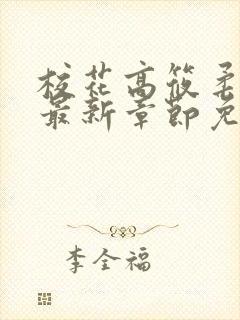 校花高筱柔
最新章節免
李全福